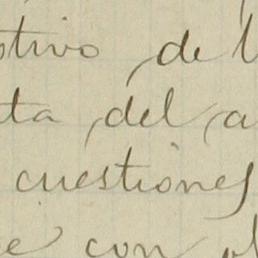 tivo de l
ta del a
cuestiones
e con el